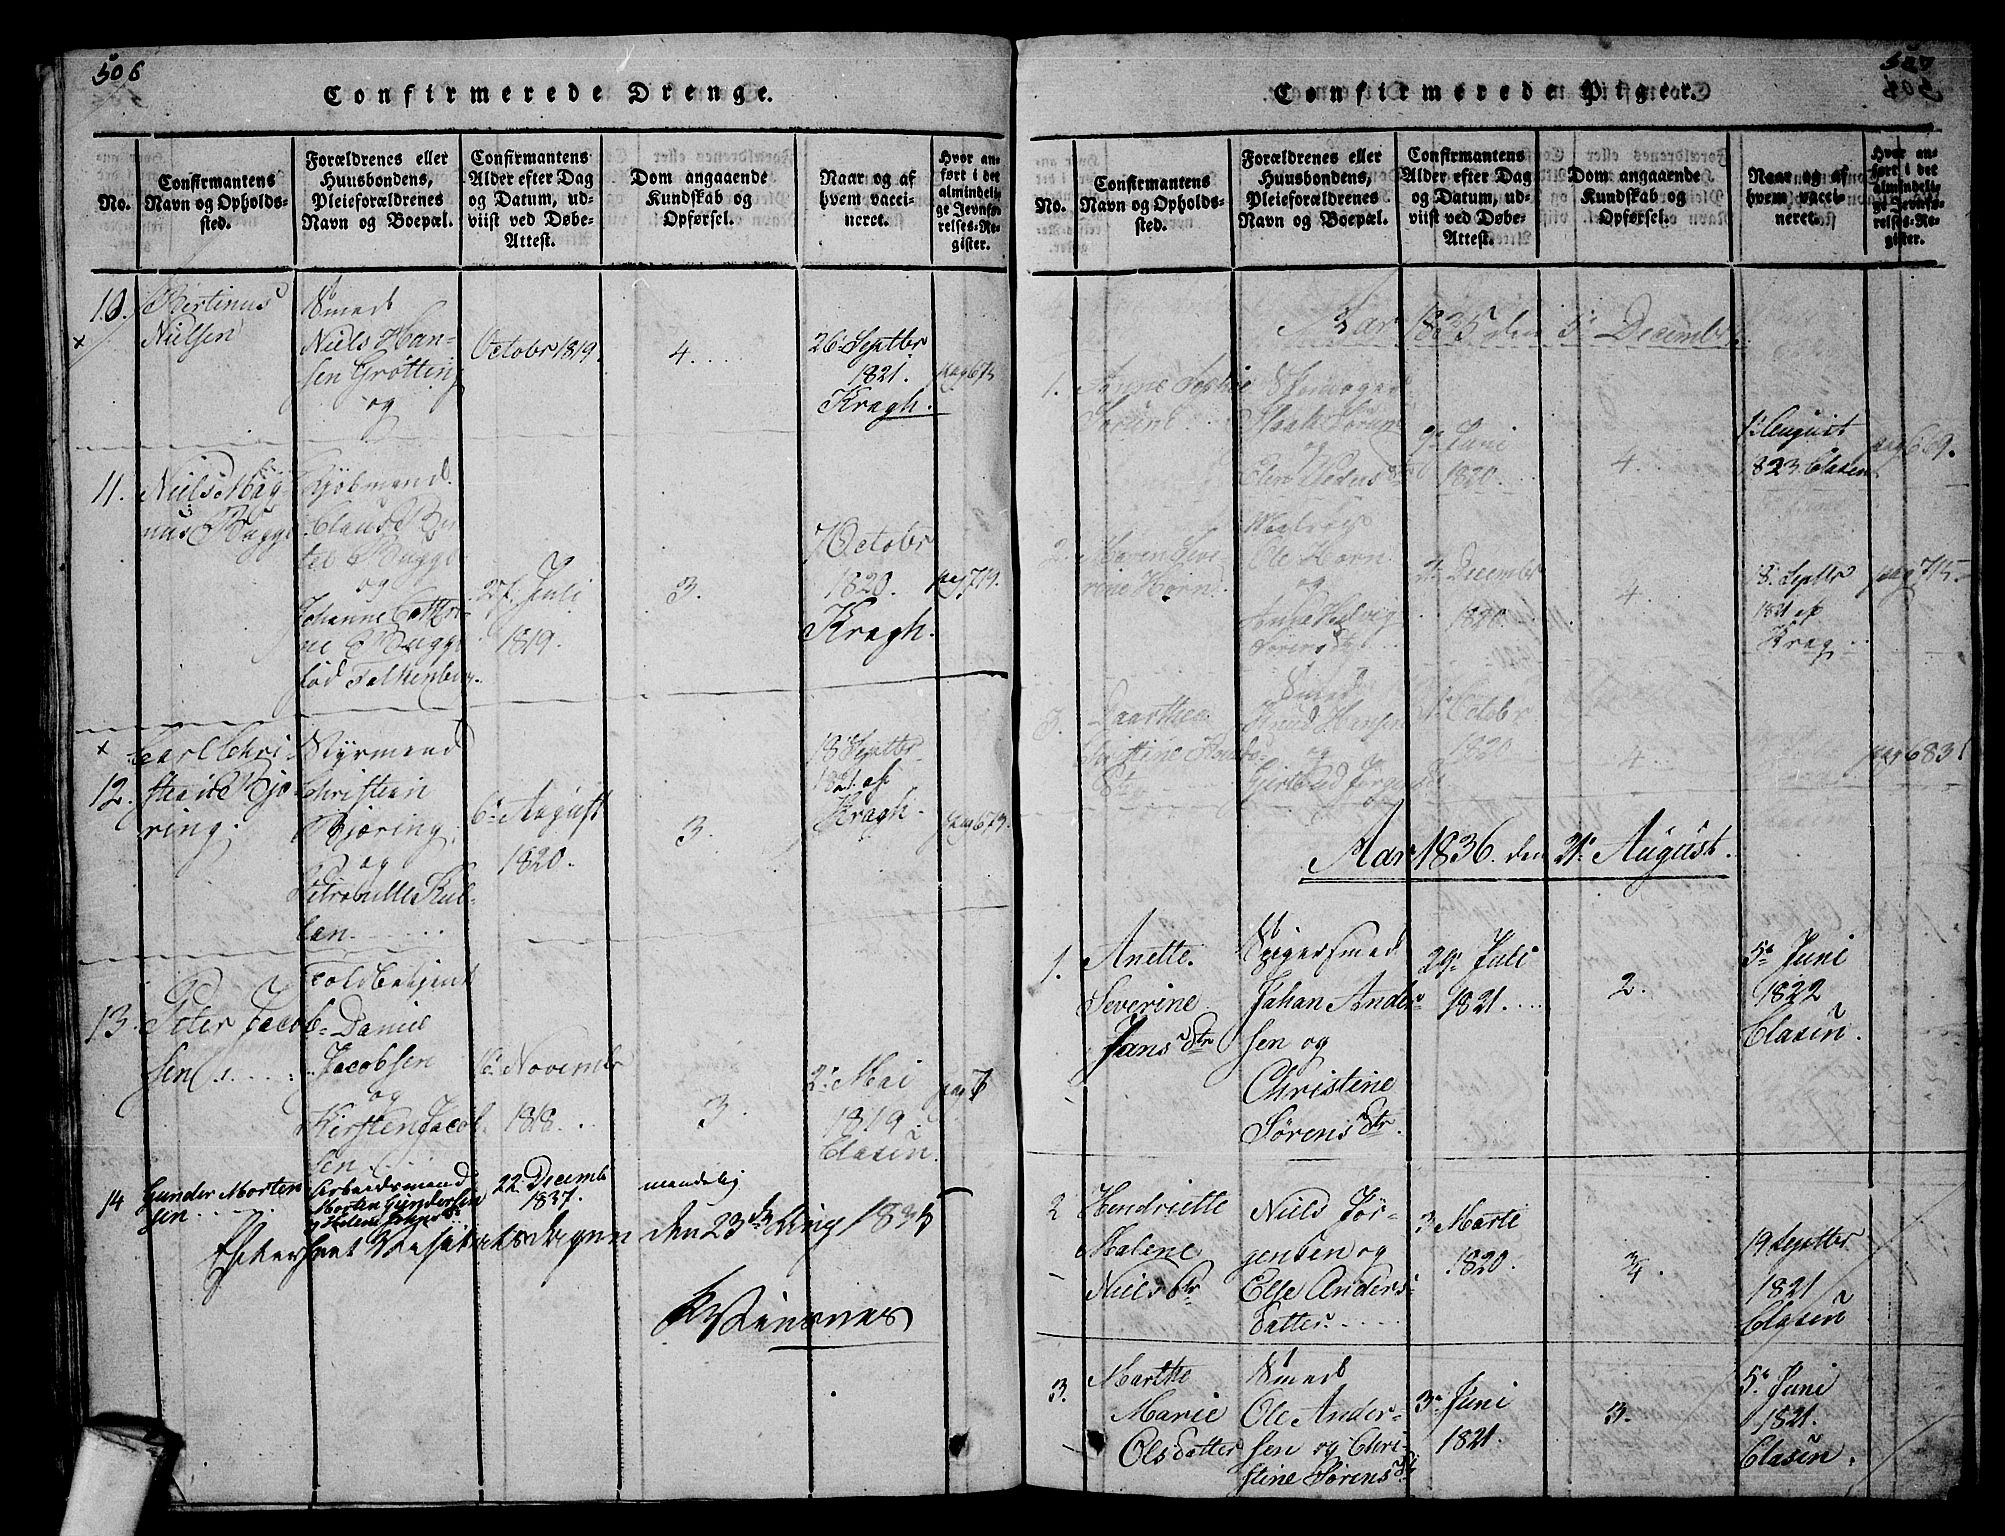 506
Confirmerede Drenge.
No.
Confirmantens
Navn og Opholds-
sted.
Forældrenes eller
Huusbondens,
Pleieforældrenes
Navn og Boepæl.
Confirmantens
Alder efter Dag
og Datum, ud-
viist ved Døbe-
Attest.
Dom angaaende
Kundskab og
Opførsel.
Naar og af
hvem vacci-
neret.
Hvor an-
ført i det
almindeli-
ge Jevnfø-
relses-Re-
gister.
10.
Bertinus
Nielsen
Smed
Niels Han-
sen Grøtting
og
Octobr 1819.
4.
26 Septbr
1821.
Kragh.
pag 675
11.
Niels Mag-
nus Bugge
Kjøbmand
Claus Ber-
tel Bugge
og
Johanne Cathri-
ne Bugge
fød Falkenberg.
27. Juli
1819.
3.
7 Octobr
1820.
Kragh.
pag 719.
12.
Carl Chri-
stian Bjø-
ring.
Styrmand
Christian
Bjøring,
og
Petronille Kul-
lan.
6. August
1820.
3.
18 Septbr
1821 af
Kragh.
pag 673.
13.
Peter Jacob-
sen
Toldbetjent
Daniel
Jacobsen
og
Kirsten Jacob-
sen
16. Novembr
1818.
3.
2. Mai
1819.
Clasen.
pag 7
14
Gunder Morten
sen
Arbeidsmand
Morten Gundersen
22 Decemb
1837.
mandelig
Efterseet Visitatsdagen den 23de Aug 1835
Confirmerede Piger.
No.
Confirmantens
Navn og Opholds-
sted.
Forældrenes eller
Huusbondens,
Pleieforældrenes
Navn og Boepæl.
Confirmantens
Alder efter Dag
og Datum, ud-
viist ved Døbe-
Attest.
Dom angaaende
Kundskab og
Opførsel.
Naar og af
hvem vacci-
neret.
Hvor an-
ført i det
almindeli-
ge Jevnfø-
relses-Re-
gister.
Aar 1835 den 5. December
1.
og
9. Juni
1820.
4.
1. August
1823 Clasen
pag 669.
2.
Maren Seve-
rine Horn.
Ole Horn
og
2. Decembr
1820.
4.
18. Septbr
1821 af
Krag
pag 715
3.
Smed
Knud Hansen
og
Octobr
1820
4.
pag 683
Aar 1836. den 21. August.
1.
Anette
Severine
Jans Dtr
Spigersmed
Johan Ander-
sen og
Christine
Sørens Dtr.
29. Juli
1821.
2.
5. Juni
1822
Clasen.
2
Hendriette
Malene
Niels Dtr
Niels Jør-
gensen og
Else Anders-
datter.
3 Marti
1820.
3/4.
19 Septbr.
1821
Clasen
3.
Marthe
Marie
Olsdatter
Smed
Ole Ander-
sen og Chri-
stine Sørens Dtr
3. Juni
1821.
3.
5. Juni
1821.
Clasen.